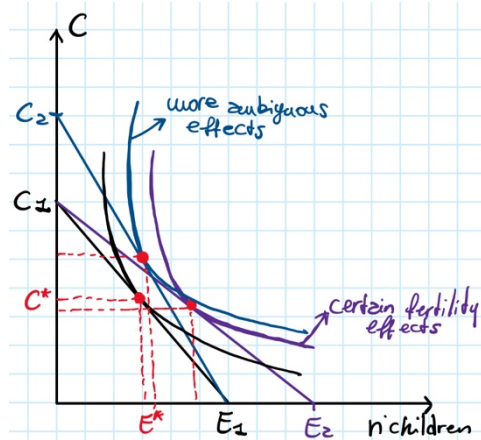 C
more ambiguous
effects
C2
C1
C*
certain fertility
effects
E*
E1
E2
n°children